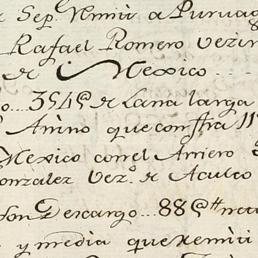 Sep. Remiti a Puruag
Rafael Romero Vezin
de Mexico
o...354@ de Lana larga
Anino que consta 11
Mexico con el Arriero
onzalez Vez.º de Aculco
son Descargo...88@ neta
y media que remiti